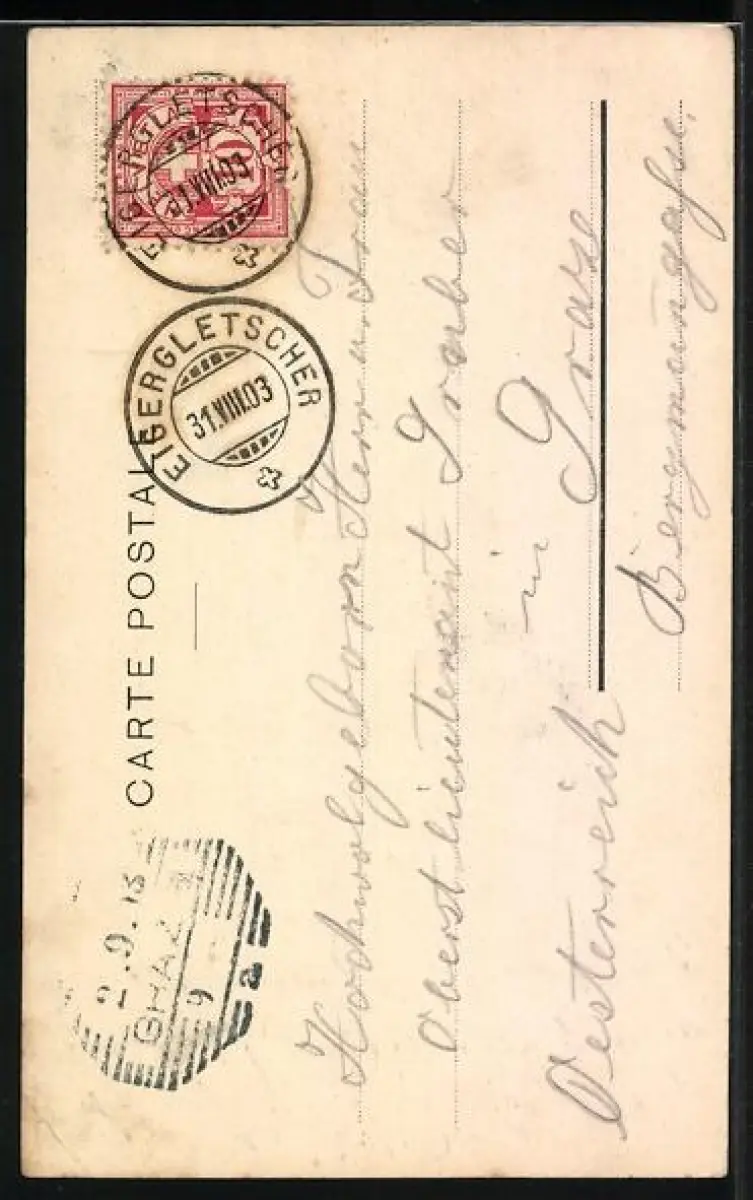 CARTE POSTALE
EIGERGLETSCHER
31.VIII.03
10
EIGERGLETSCHER
31.VIII.03
GRAZ
9
a
Hochwolgeboren Herrn u. Frau
Oberstlieutenant Graber
in Graz
Oesterreich
Bergmanngasse.